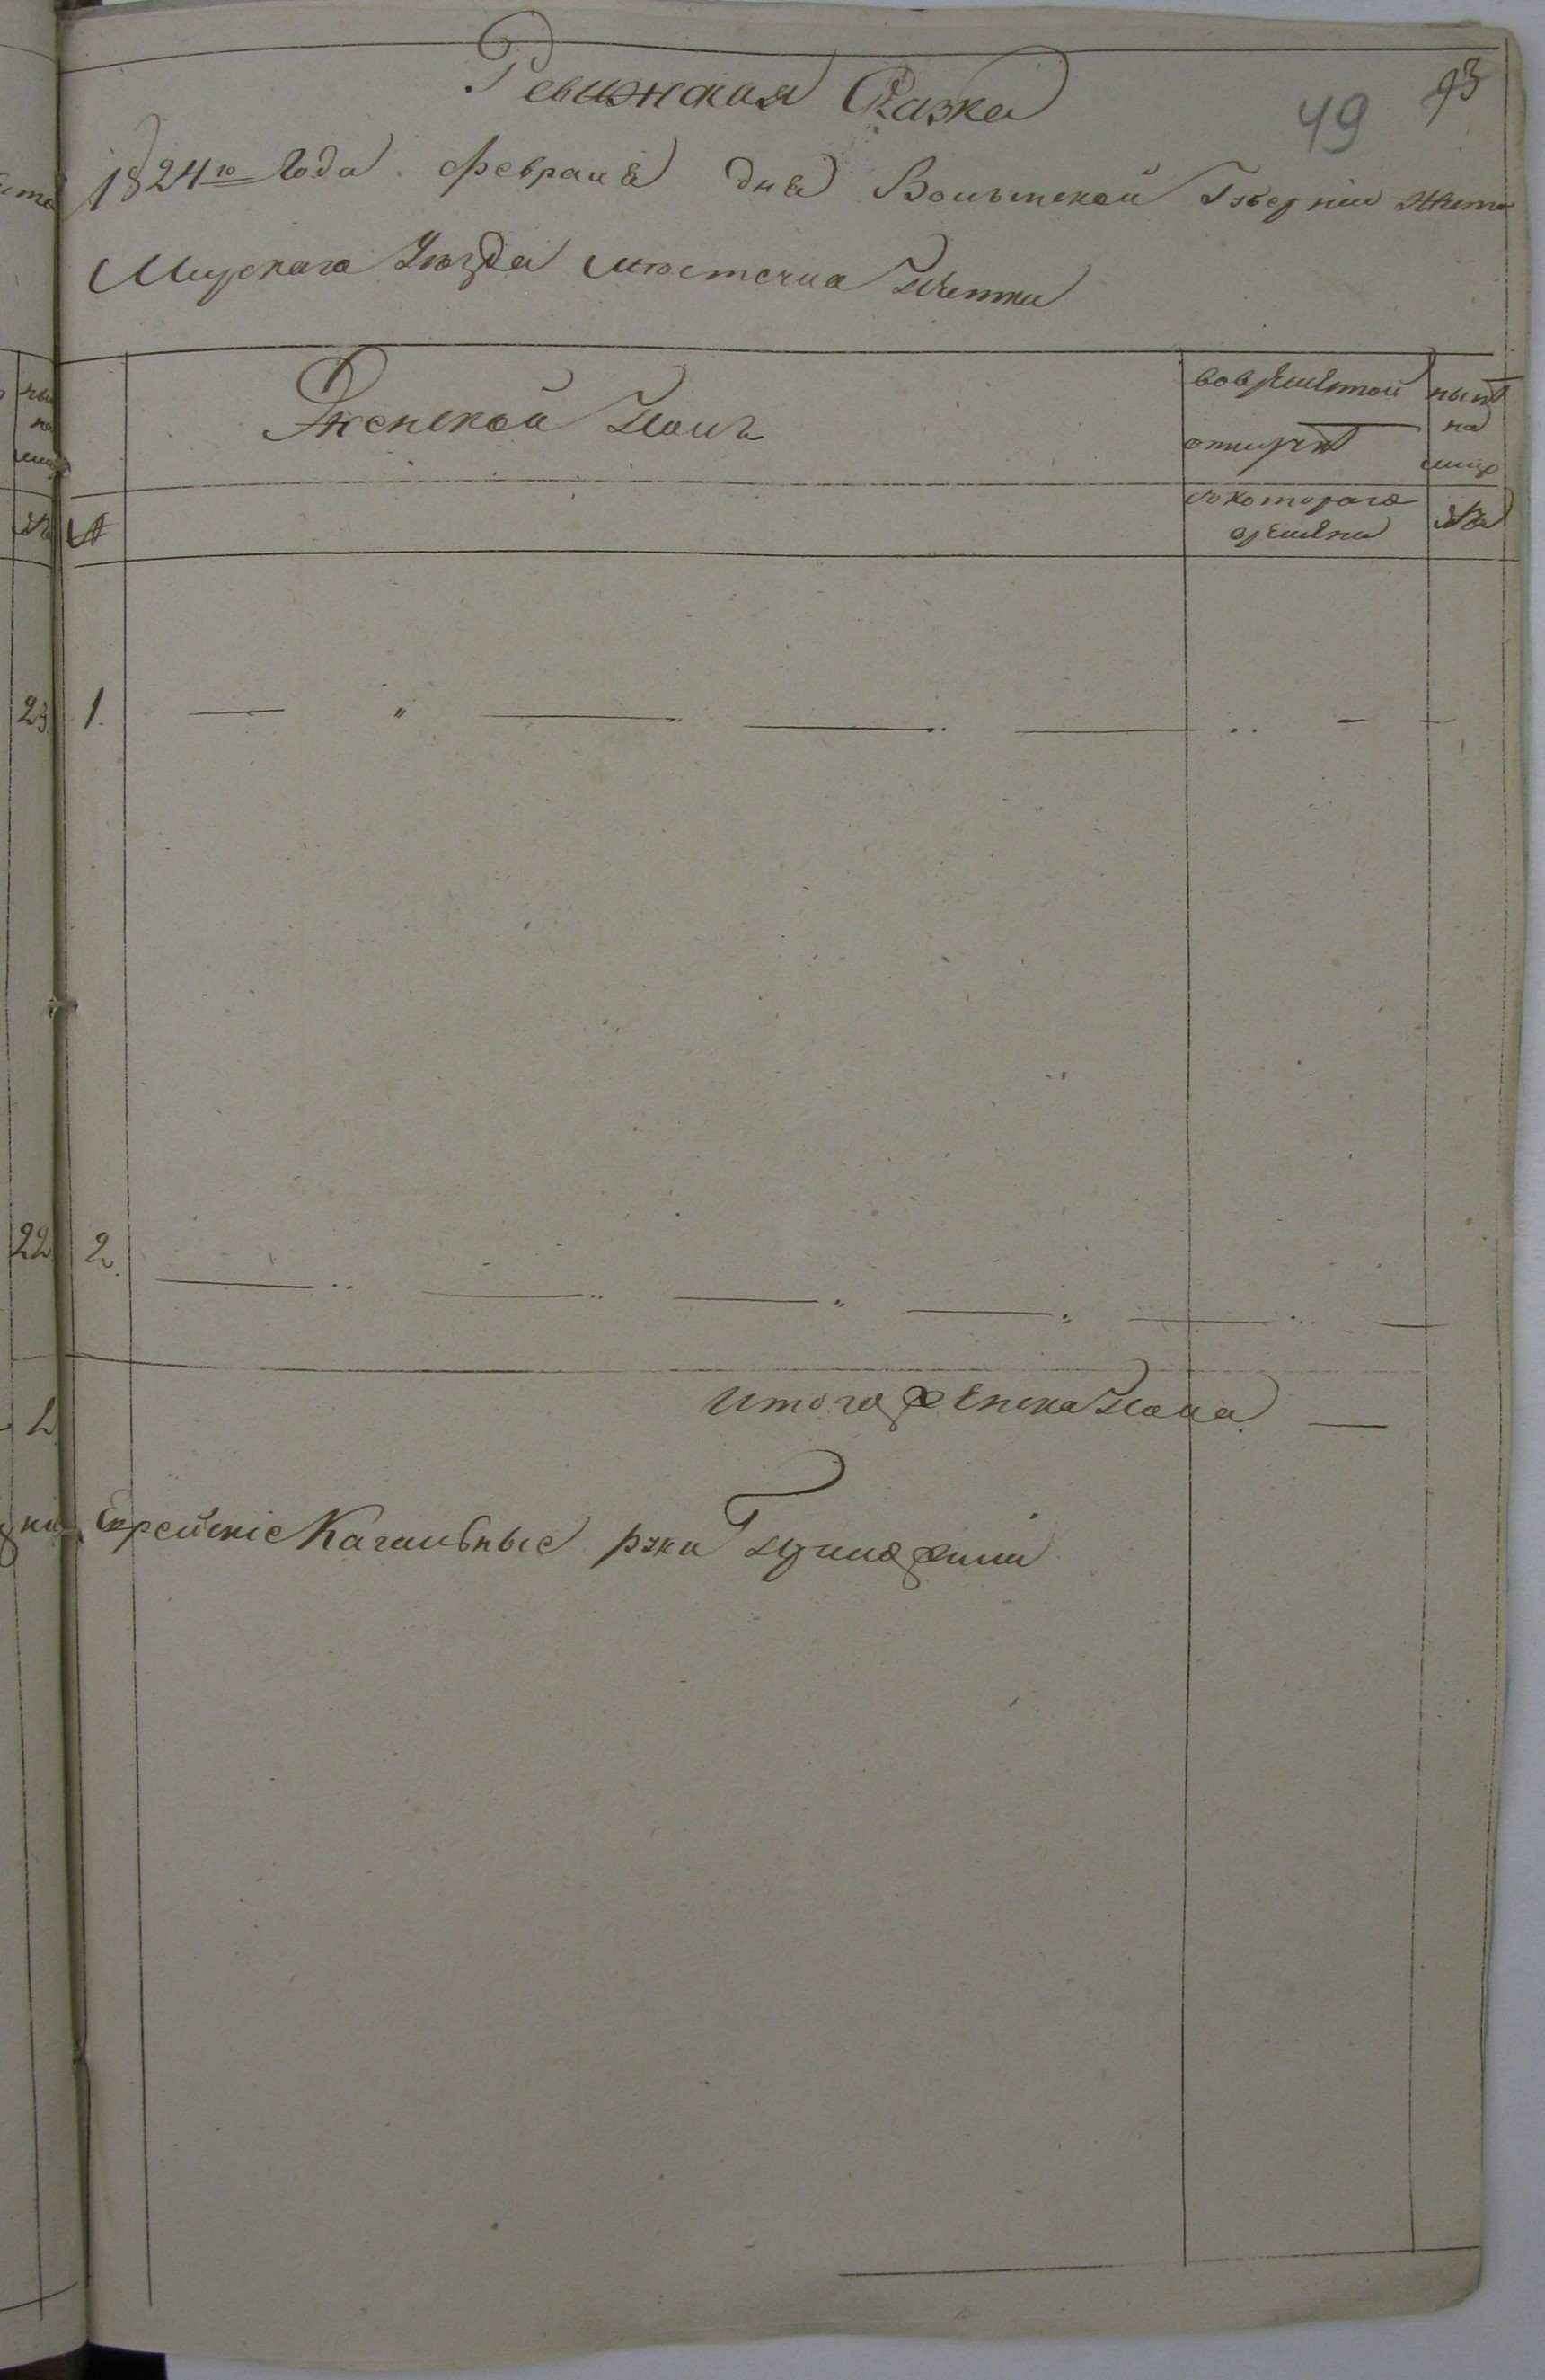 Ревижская Сказка
49 93
1824го Года. февраля дня Волынской Губернiи Жито
Мирскаго Уезда местечка
Женской Полъ
вовремѣнной
отлучкѣ
нынѣ
на
лицо
№
скотораго
времѣни
лѣта
23. 1. — " — " — " — " — —
22 2. — " — " — " — " — " —
Итого женска пола. —
2
Еврейскiе Кагальные руки приложили